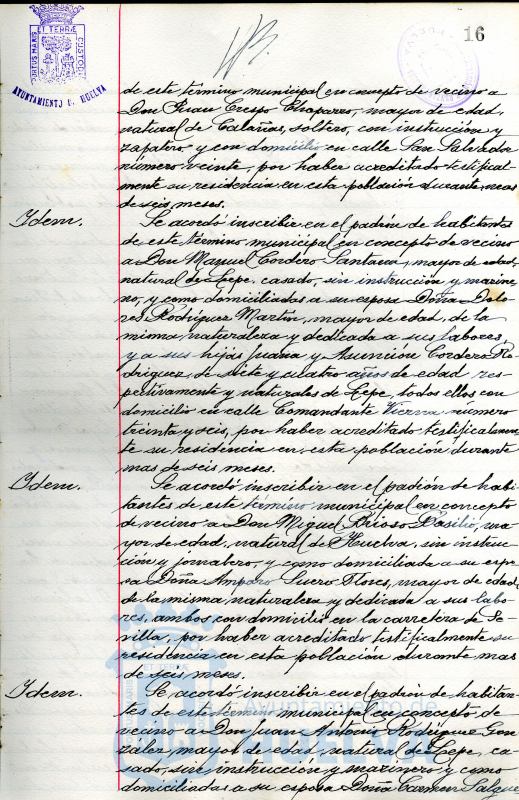 ET TERRÆ
PORTUS MARIS
CUSTODIA
AYUNTAMIENTO D. HUELVA
16
de este término municipal en concepto de vecino a
Don Juan Crespo Chaparro, mayor de edad,
natural de Calañas, soltero, con instrucción y
zapatero y con domicilio en calle San Salvador
número veinte, por haber acreditado testifical-
mente su residencia en esta población durante mas
de seis meses.
Idem.
Se acordó inscribir en el padrón de habitantes
de este término municipal en concepto de vecino
a Don Manuel Cordero Santana, mayor de edad,
natural de Lepe, casado, sin instrucción y marine-
ro, y como domiciliadas a su esposa Doña Dolo-
res Rodríguez Martín, mayor de edad, de la
misma naturaleza y dedicada a sus labores,
y a sus hijas Juana y Asunción Cordero Ro-
dríguez, de siete y cuatro años de edad res-
pectivamente y naturales de Lepe, todos ellos con
domicilio en calle Comandante Vierna número
treinta y seis, por haber acreditado testificalmen-
te su residencia en esta población durante
mas de seis meses.
Idem.
Se acordó inscribir en el padrón de habi-
tantes de este término municipal en concepto
de vecino a Don Miguel Brioso Basilio, ma-
yor de edad, natural de Huelva, sin instruc-
ción y jornalero, y como domiciliada a su espo-
sa Doña Amparo Suero Flores, mayor de edad,
de la misma naturaleza y dedicada a sus labo-
res, ambos con domicilio en la carretera de Se-
villa, por haber acreditado testificalmente su
residencia en esta población durante mas
de seis meses.
Idem.
Se acordó inscribir en el padrón de habitan-
tes de este término municipal en concepto de
vecino a Don Juan Antonio Rodríguez Gon-
zález, mayor de edad, natural de Lepe, ca-
sado, sin instrucción y marinero y como
domiciliadas a su esposa Doña Carmen Salgue
ET TERRÆ
Ayuntamiento de
HUELVA